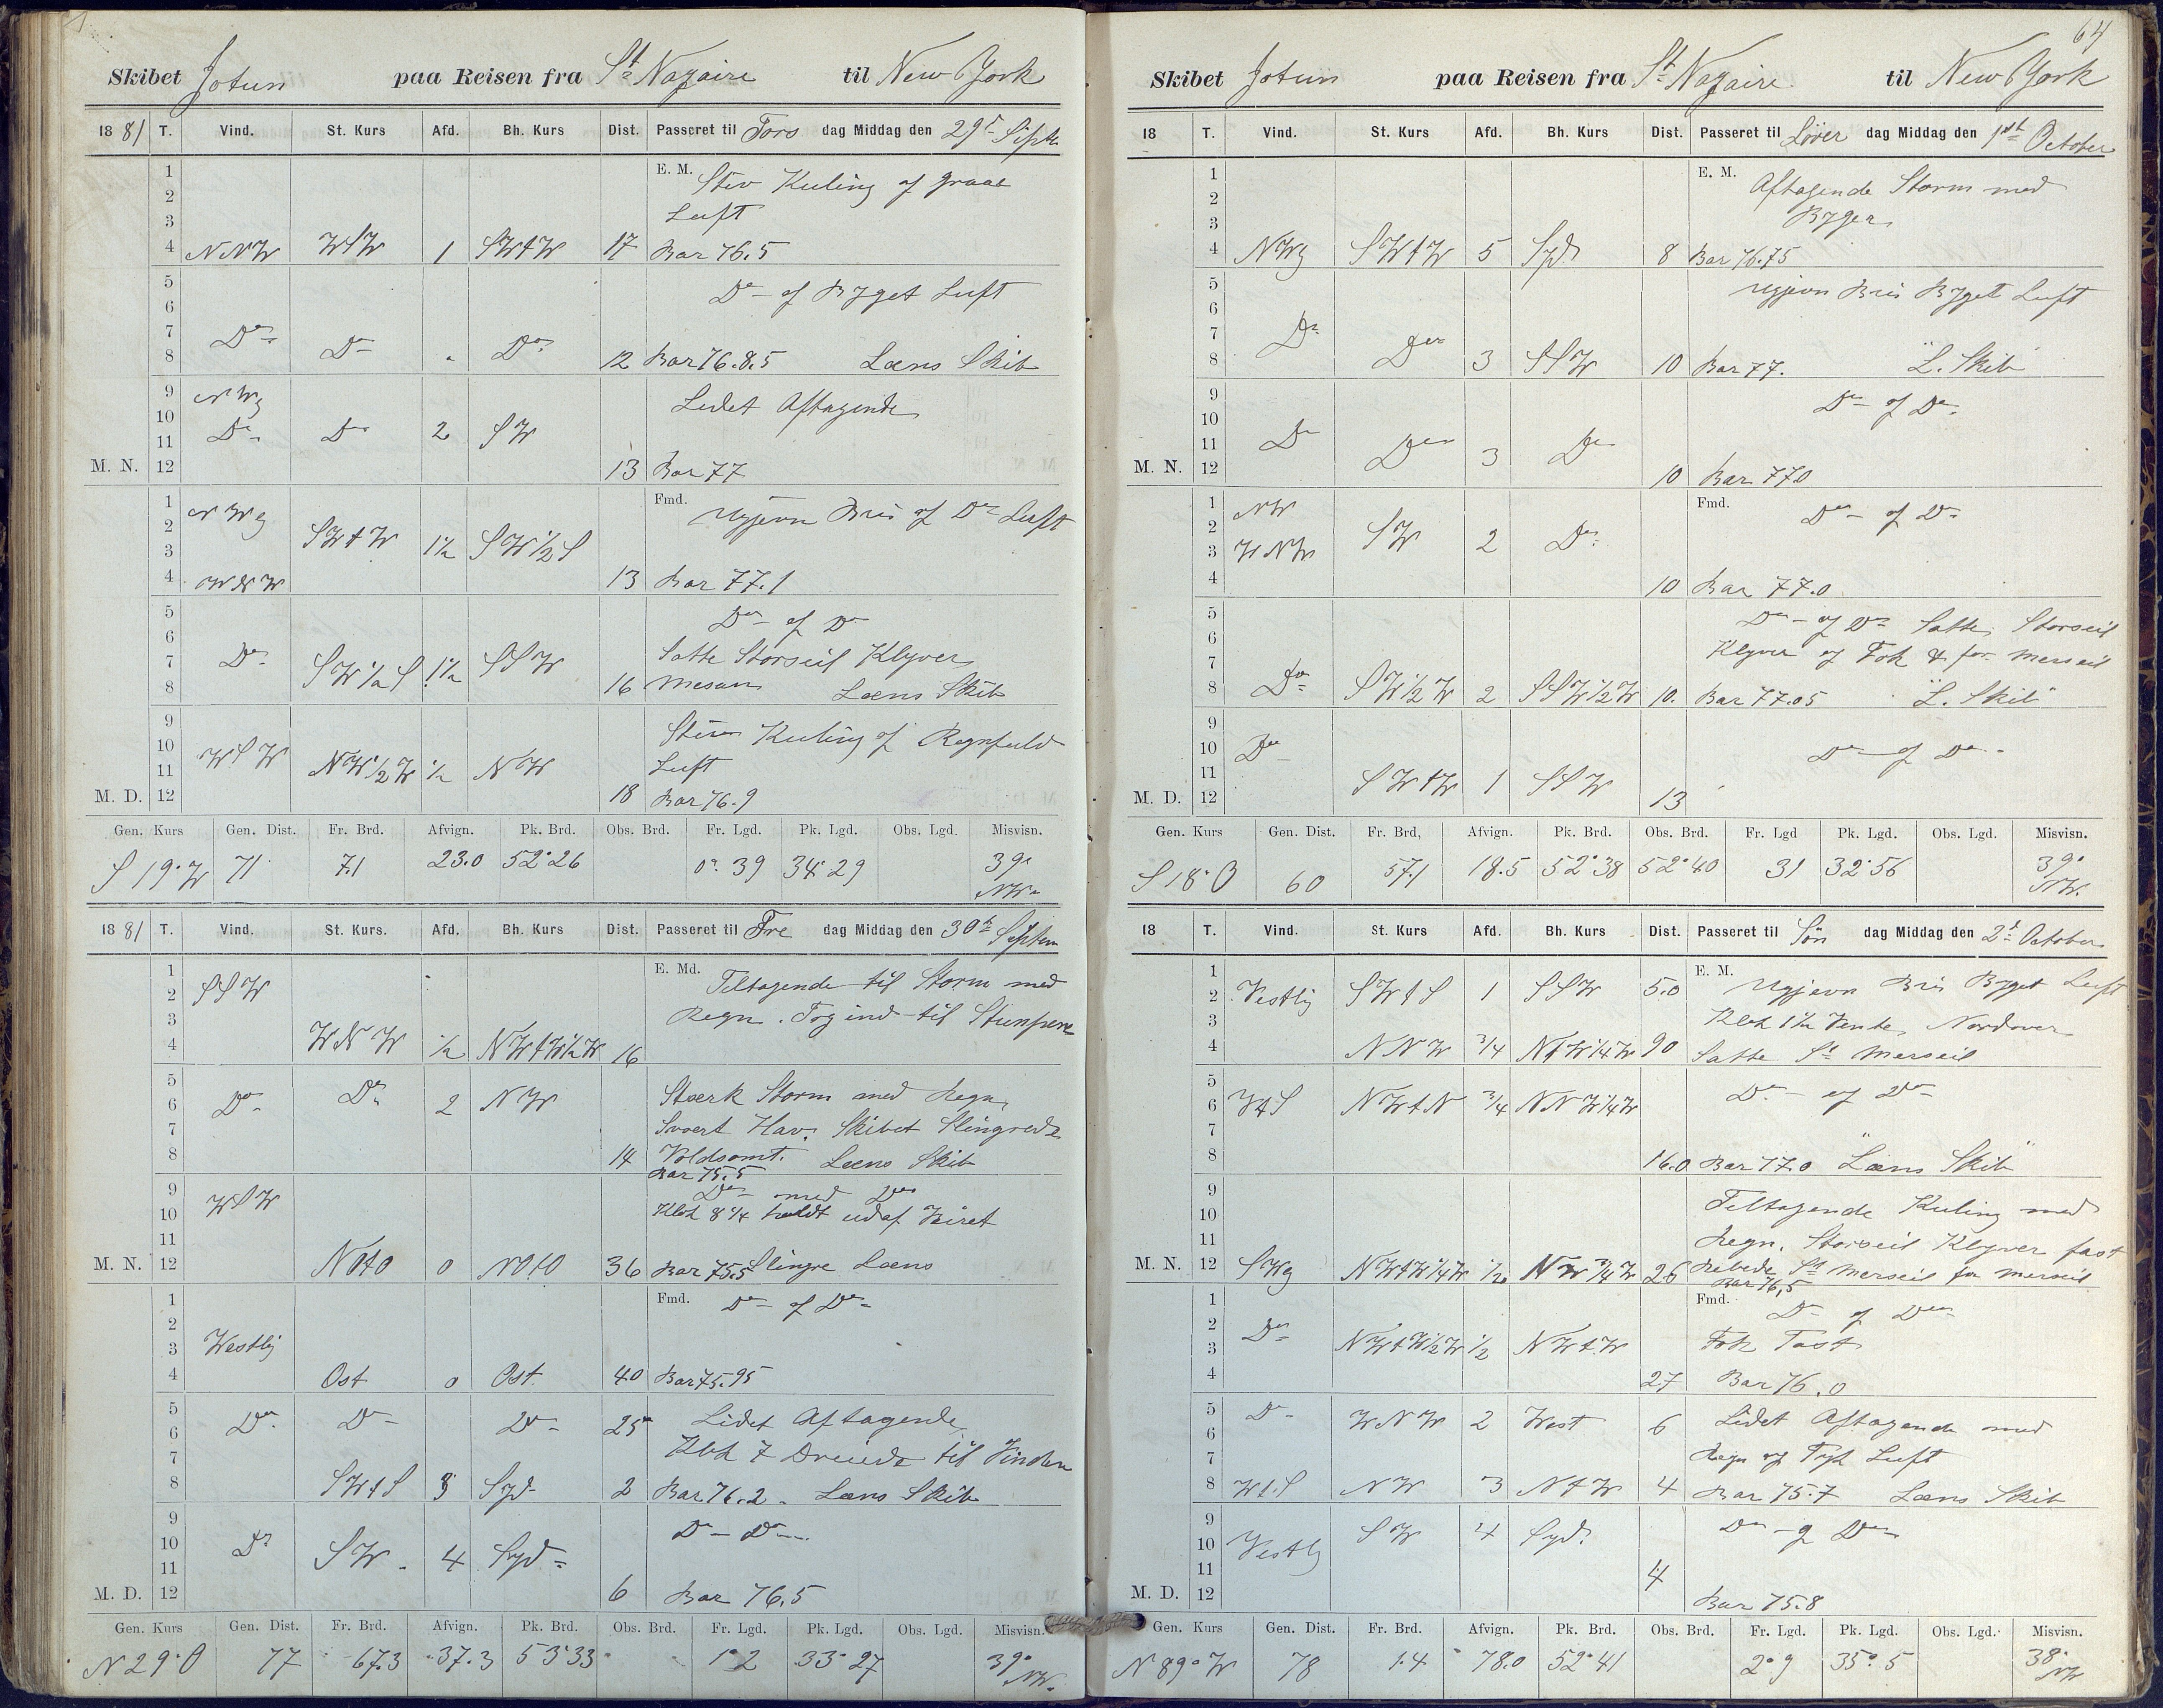 64
Skibet Jotun paa Reisen fra St Nazaire til New York
1881 T. Vind. St. Kurs Afd. Bh. Kurs Dist. Passeret til Tors dag Middag den 29d Septr
1 E. M. Stiv Kuling og graae
2 Luft
3
4 NNW WSW 1 SWtW 17 Bar 76.5
5 Do - og Byget Luft
6
7 Do
8 Do Do 12 Bar 76.8.5 Læns Skib
9 NWg Lidet Aftagende
10
11 Do Do 2 SW
M. N. 12 13 Bar 77
1 NWg Fmd. Ugjevn Bris og Do Luft
2
3 SWtW 1½ SW½S
4 WNW 13 Bar 77.1
5 Do - og Do
6 Satte Storseil Klyver
7 Do SW½S 1½ SSW
8 16 Mesan Læns Skib
9 Stiv Kuling og Regnfuld
10 Luft
11 WSW NW½W ½ NW
M. D. 12 18 Bar 76.9
Gen. Kurs Gen. Dist. Fr. Brd. Afvign. Pk. Brd. Obs. Brd. Fr. Lgd. Pk. Lgd. Obs. Lgd. Misvisn.
S 19° W 71 71 23.0 52°26 0° 39 34°29 39° NW
1881 T. Vind. St. Kurs. Afd. Bh. Kurs Dist. Passeret til Fre dag Middag den 30th Septem
1 E. Md. Tiltagende til Storm med
2 SSW Regn. Tog ind til Stumpene
3
4 WNW ½ NWtW½W 16
5 Stærk Storm med Regn,
6 Do Do 2 NW Svært Hav. Skibet Slingrede
7 Voldsomt. Læns Skib
8 14 Bar 75.5
9 Do - med Do
10 WSW Klok 8¼ holdt udaf Veiret
11
M. N. 12 NOtO 0 NOtO 36 Bar 75.5 Slingre Læns
1 Fmd. Do - og Do
2
3 Westlig
4 Ost 0 Ost 40 Bar 75.95
5 Do Do Do 25 Lidet Aftagende
6
7 Klok 7 Dreiede til Vinden
8 SWtS 3 Syd 2 Bar 76.2 Læns Skib
9 Do - Do
10 Do
11 SW 4 Syd
M. D. 12 6 Bar 76.5
Gen. Kurs Gen. Dist. Fr. Brd. Afvign. Pk. Brd. Obs. Brd. Fr. Lgd. Pk. Lgd. Obs. Lgd. Misvisn.
N 29° O 77 67.3 37.3 53°33 1° 2 33° 27 39° NW
Skibet Jotun paa Reisen fra St Nazaire til New York
18 T. Vind. St. Kurs Afd. Bh. Kurs Dist. Passeret til Löver dag Middag den 1st October
1 E. M. Aftagende Storm med
2 Byger
3
4 NWg SWtW 5 Syd 8 Bar 76.75
5 Ugjevn Bris Byget Luft
6
7 Do
8 Do 3 SSW 10 Bar 77. "L. Skib
9 Do - og Do
10
11 Do Do 3 Do
M. N. 12 10 Bar 770
1 NW Fmd. Do - og Do
2
3 WNW SW 2 Do
4 10 Bar 77.0
5 Do - og Do Satte Storseil
6 Klyver og Fok & for Merseil
7
8 Do SW½W 2 SSW½W 10. Bar 77.05 "L. Skib"
9
10 Do Do - og Do
11 SWtW 1 SSW
M. D. 12 13
Gen. Kurs Gen. Dist. Fr. Brd, Afvign. Pk. Brd. Obs. Brd. Fr. Lgd Pk. Lgd. Obs. Lgd. Misvisn.
S 18° O 60 57.1 18.5 52°38 52°40 31 32°56 39° NW.
18 T. Vind. St. Kurs Afd. Bh. Kurs Dist. Passeret til Sön dag Middag den 2d October
1 E. M. Ugjevn Bris Byget Luft
2 Vestlig SWtS 1 SSW 5.0
3 Klok 1½ Vendte Nordover
4 NNW ¾ NtW¼W 90 Satte St Merseil
5 Do - og Do
6 WtS NWtN ¾ NNW¼W
7
8 16.0 Bar 77.0 "Læns Skib"
9 Tiltagende Kuling med
10
11 Regn. Storseil Klyver fast
M. N. 12 SWg NWtW¼W ½ NW¾W 26 Rebede St Merseil for Merseil
Bar 76,5
1 Fmd. Do og Do
2 Do
3 NWtW½W ½ NWtW Fok Fast
4 27 Bar 76.0
5 Do WNW 2 West 6 Lidet Aftagende med
6
7 Regn og Tyk Luft
8 WtS NW 3 NtW 4 Bar 75.7 Læns Skib
9 SW 4 Syd. Do - og Do
10 Vestlig
11 4
M. D. 12 Bar 75.8
Gen. Kurs Gen. Dist. Fr. Brd. Afvign. Pk. Brd. Obs. Brd. Fr. Lgd. Pk. Lgd. Obs. Lgd. Misvisn.
N 89° W 78 1.4 78.0 52°41 2° 9 35° 5 38° NW